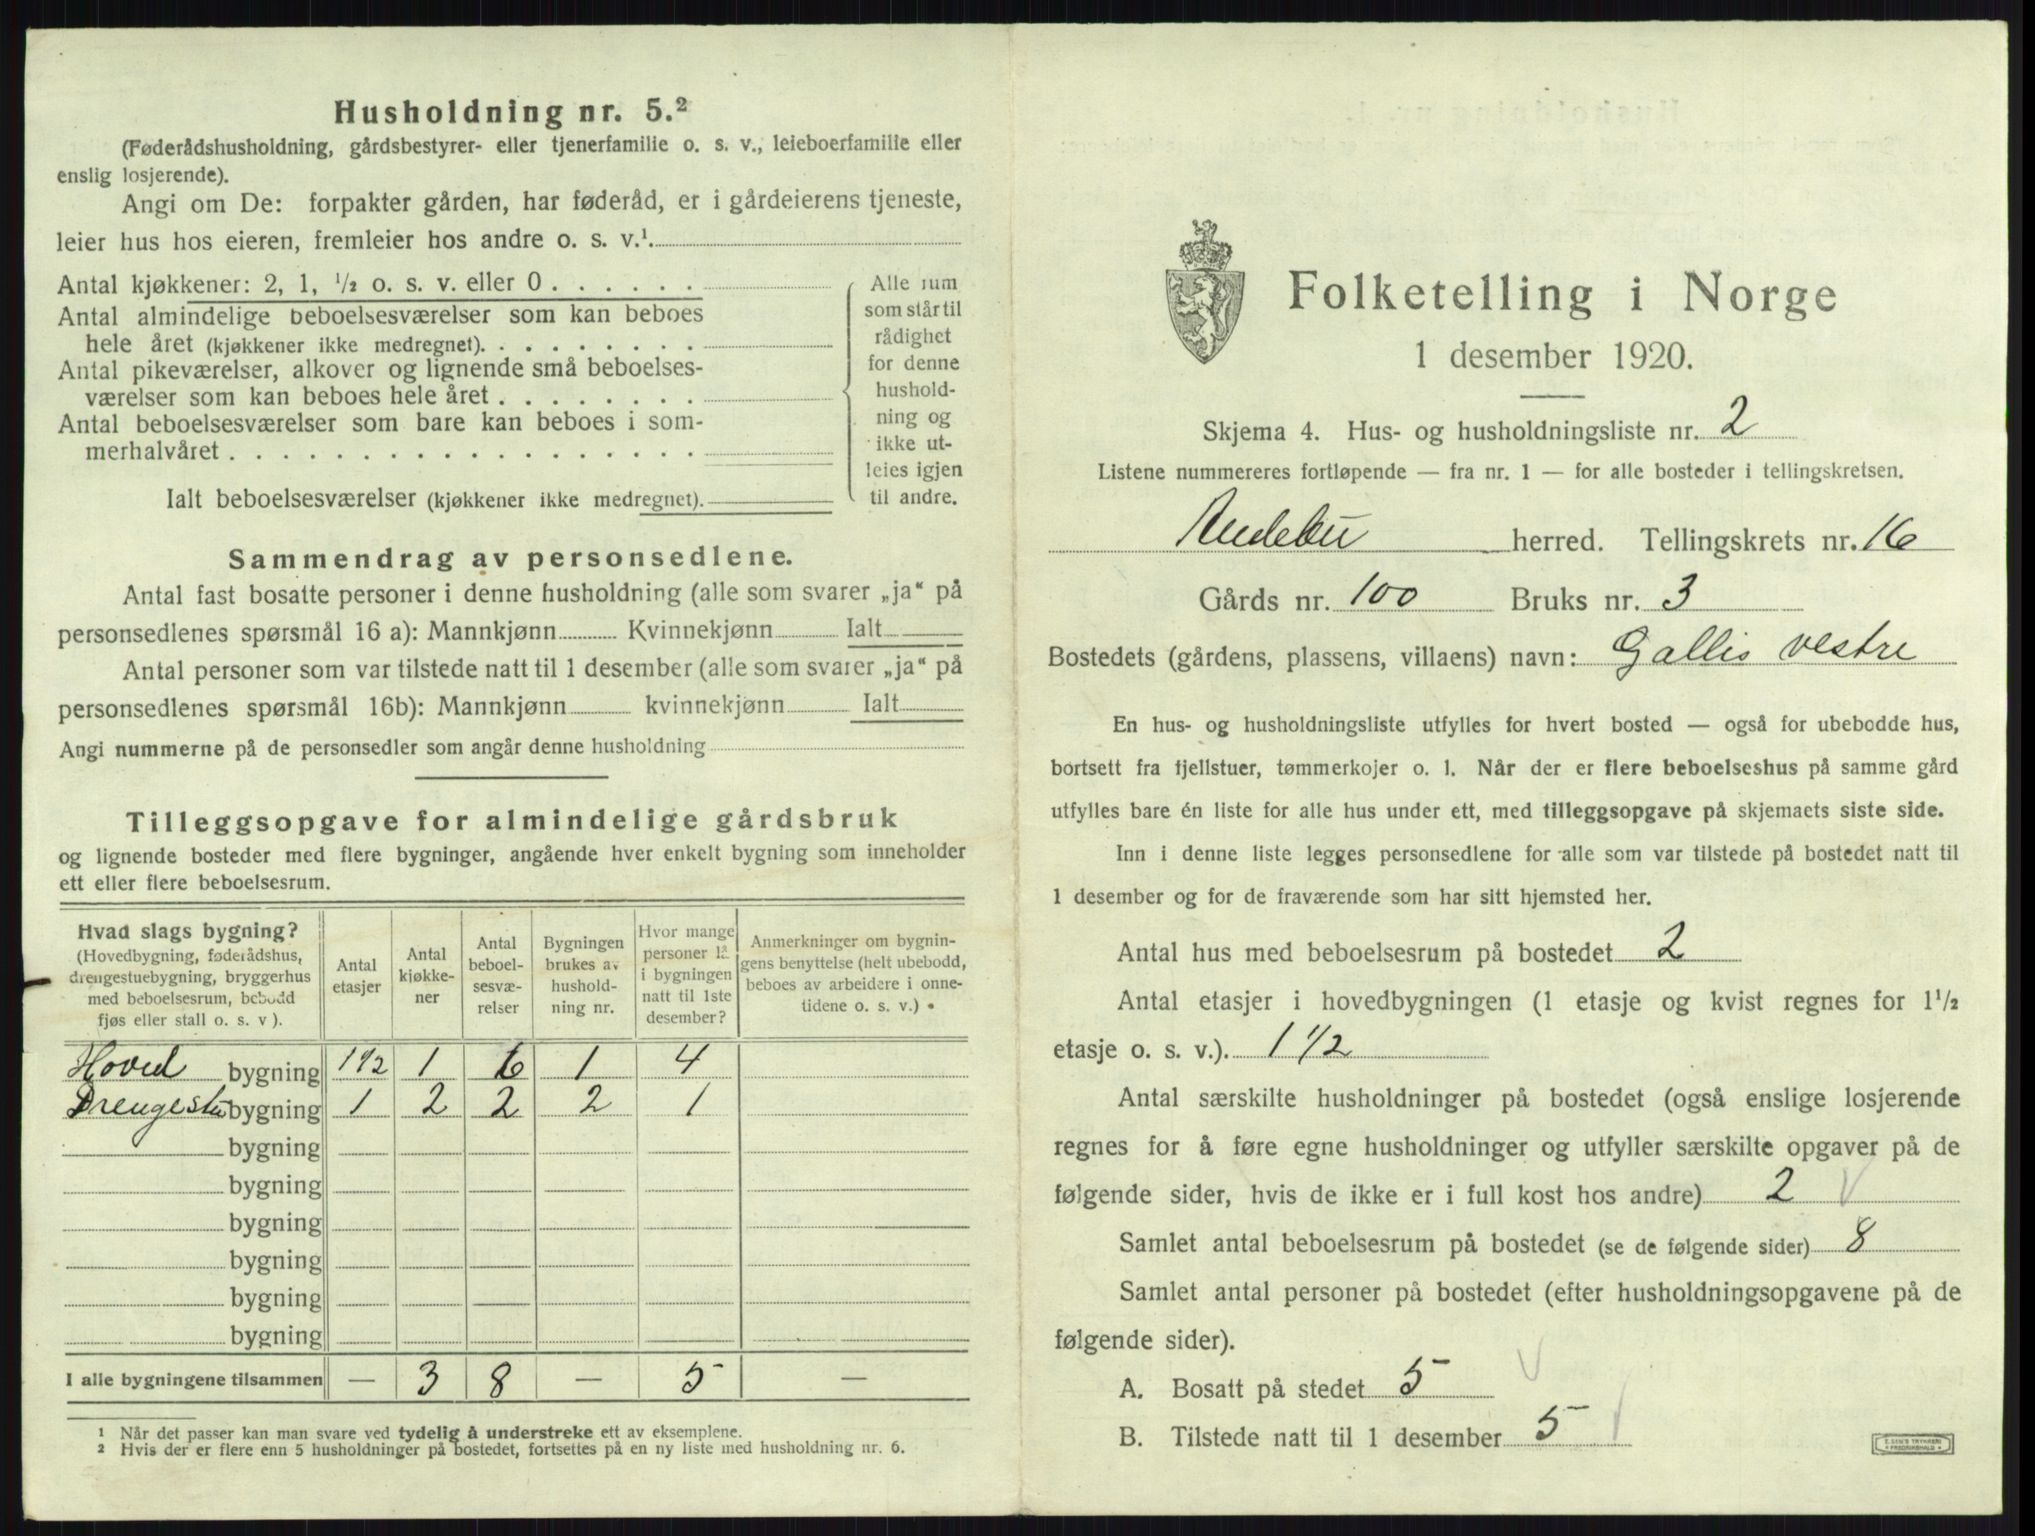 Husholdning nr. 5.²
(Føderådshusholdning, gårdsbestyrer- eller tjenerfamilie o. s. v., leieboerfamilie eller
enslig losjerende).
Angi om De: forpakter gården, har føderåd, er i gårdeierens tjeneste,
leier hus hos eieren, fremleier hos andre o. s. v.¹
Antal kjøkkener: 2, 1, ½ o. s. v. eller 0 . . . . . .
Antal almindelige beboelsesværelser som kan beboes
hele året (kjøkkener ikke medregnet). . . . . . . . .
Antal pikeværelser, alkover og lignende små beboelses-
værelser som kan beboes hele året . . . . . . . .
Antal beboelsesværelser som bare kan beboes i som-
merhalvåret . . . . . . . . . . . . . . . . . .
Ialt beboelsesværelser (kjøkkener ikke medregnet).
Alle rum
som står til
rådighet
for denne
hushold-
ning og
ikke ut-
leies igjen
til andre.
Sammendrag av personsedlene.
Antal fast bosatte personer i denne husholdning (alle som svarer „ja“ på
personsedlenes spørsmål 16 a): Mannkjønn Kvinnekjønn Ialt
Antal personer som var tilstede natt til 1 desember (alle som svarer „ja“ på
personsedlenes spørsmål 16b): Mannkjønn kvinnekjønn Ialt
Angi nummerne på de personsedler som angår denne husholdning
Tilleggsopgave for almindelige gårdsbruk
og lignende bosteder med flere bygninger, angående hver enkelt bygning som inneholder
ett eller flere beboelsesrum.
Hvad slags bygning?
(Hovedbygning, føderådshus,
drengestuebygning, bryggerhus
med beboelsesrum, bebodd
fjøs eller stall o. s. v ).
Antal
etasjer
Antal
kjøkke-
ner
Antal
beboel-
sesvæ-
relser
Bygningen
brukes av
hushold-
ning nr.
Hvor mange
personer lå
i bygningen
natt til 1ste
desember?
Anmerkninger om bygnin-
gens benyttelse (helt ubebodd,
beboes av arbeidere i onne-
tidene o. s. v.)
Hoved bygning 1 1/2 1 6 1 4
Drengestu bygning 1 2 2 2 1
bygning
bygning
bygning
bygning
bygning
bygning
I alle bygningene tilsammen — 3 8 — 5 —
¹ Når det passer kan man svare ved tydelig å understreke ett av eksemplene.
² Hvis der er flere enn 5 husholdninger på bostedet, fortsettes på en ny liste med husholdning nr. 6.
Folketelling i Norge
1 desember 1920.
Skjema 4. Hus- og husholdningsliste nr. 2
Listene nummereres fortløpende — fra nr. 1 — for alle bosteder i tellingskretsen.
Andebu herred. Tellingskrets nr. 16
Gårds nr. 100 Bruks nr. 3
Bostedets (gårdens, plassens, villaens) navn: Gallis vestre
En hus- og husholdningsliste utfylles for hvert bosted — også for ubebodde hus,
bortsett fra fjellstuer, tømmerkojer o. l. Når der er flere beboelseshus på samme gård
utfylles bare én liste for alle hus under ett, med tilleggsopgave på skjemaets siste side.
Inn i denne liste legges personsedlene for alle som var tilstede på bostedet natt til
1 desember og for de fraværende som har sitt hjemsted her.
Antal hus med beboelsesrum på bostedet 2
Antal etasjer i hovedbygningen (1 etasje og kvist regnes for 1½
etasje o. s. v.). 1 1/2
Antal særskilte husholdninger på bostedet (også enslige losjerende
regnes for å føre egne husholdninger og utfyller særskilte opgaver på de
følgende sider, hvis de ikke er i full kost hos andre) 2
Samlet antal beboelsesrum på bostedet (se de følgende sider) 8
Samlet antal personer på bostedet (efter husholdningsopgavene på de
følgende sider).
A. Bosatt på stedet 5
B. Tilstede natt til 1 desember 5